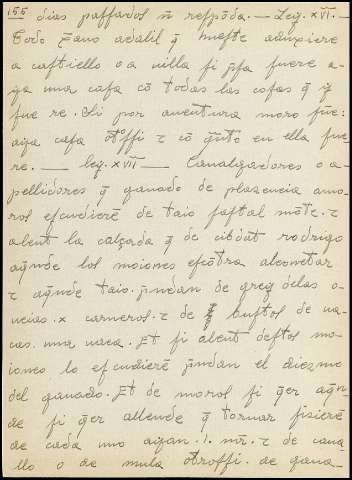 155 dias passados ñ respõda. — Ley. XVI. —
Todo Zauo adalil q̃ hueste aduxiere
a castiello o a uilla si p̃sa fuere a-
ya una casa cõ todas las cosas q̃ y
fue re. Si por auentura moro fue:
aya casa otossi ꞇ cõ q̃nto en ella fue
re. — ley. XVII — Caualgadores o a-
pellidores q̃ ganado de plazencia a mo-
ros escudierẽ de taio fastal mõte. ꞇ
alent la calçada q̃ de cibdat rodrigo
aq̃nde los moiones escõtra alconetar
ꞇ aq̃nde taio. p̃ndan de greg delas o-
ueias. x carneros. ꞇ de bustos de ua-
cas. una uaca. Et si alent destos mo-
iones lo escudierẽ p̃ndan el diezmo
del ganado. Et de moros si q̃er aq̃n-
de si q̃er allende q̃ tornar fisierẽ
de cada uno ayan .I. mr̃. ꞇ de caua-
llo o de mula otrossi. de gana-